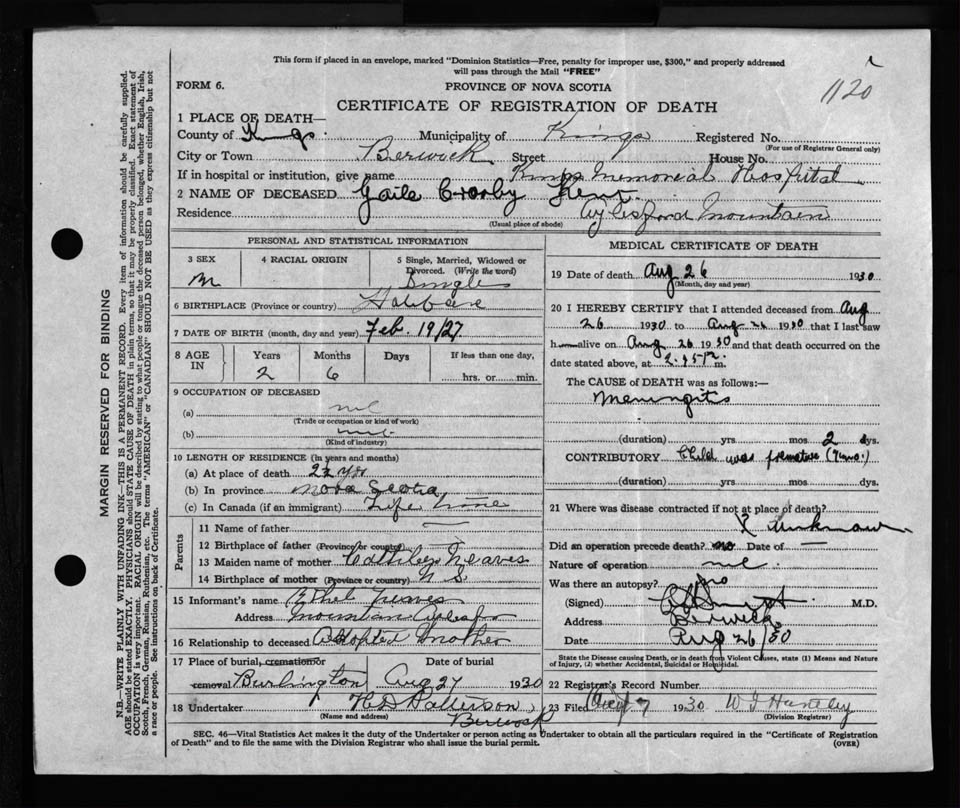 This form if placed in an envelope, marked "Dominion Statistics—Free, penalty for improper use, $300," and properly addressed
will pass through the Mail "FREE"
1120
FORM 6. PROVINCE OF NOVA SCOTIA
CERTIFICATE OF REGISTRATION OF DEATH
1 PLACE OF DEATH—
County of Kings Municipality of Kings Registered No.
(For use of Registrar General only)
City or Town Berwick Street House No.
If in hospital or institution, give name Kings Memorial Hospital
2 NAME OF DECEASED Gaile Crosby
Residence Aylesford Mountain
(Usual place of abode)
PERSONAL AND STATISTICAL INFORMATION
3 SEX 4 RACIAL ORIGIN 5 Single, Married, Widowed or
Divorced. (Write the word)
M Single
6 BIRTHPLACE (Province or country)
7 DATE OF BIRTH (month, day and year) Feb. 19/27
8 AGE IN Years Months Days If less than one day,
2 6 hrs. or min.
9 OCCUPATION OF DECEASED
(a) nil
(Trade or occupation or kind of work)
(b) nil
(Kind of industry)
10 LENGTH OF RESIDENCE (In years and months)
(a) At place of death 2½ yr
(b) In province Nova Scotia
(c) In Canada (if an immigrant) Life time
Parents
11 Name of father —
12 Birthplace of father (Province or country)
13 Maiden name of mother Neaves
14 Birthplace of mother (Province or country) N S
15 Informant's name Ethel Neaves
Address Mountain
16 Relationship to deceased Adopted Mother
17 Place of burial, cremation or Date of burial
removal Burlington Aug 27 1930
18 Undertaker H D Patterson
(Name and address) Berwick
MEDICAL CERTIFICATE OF DEATH
19 Date of death Aug 26 1930
(Month, day and year)
20 I HEREBY CERTIFY that I attended deceased from Aug
26 1930 to Aug 26 1930 that I last saw
h alive on Aug 26 1930 and that death occurred on the
date stated above, at m.
The CAUSE of DEATH was as follows:—
Meningitis
(duration) yrs. mos 2 dys.
CONTRIBUTORY Child was premature
(duration) yrs. mos dys.
21 Where was disease contracted if not at place of death?
unknown
Did an operation precede death? no Date of —
Nature of operation nil
Was there an autopsy? no
(Signed) M.D.
Address Berwick
Date Aug 26/30
State the Disease causing Death, or in death from Violent Causes, state (1) Means and Nature
of Injury, (2) whether Accidental, Suicidal or Homicidal.
22 Registrar's Record Number
23 Filed 1930
(Division Registrar)
SEC. 46—Vital Statistics Act makes it the duty of the Undertaker or person acting as Undertaker to obtain all the particulars required in the "Certificate of Registration
of Death" and to file the same with the Division Registrar who shall issue the burial permit. (OVER)
MARGIN RESERVED FOR BINDING
N.B.—WRITE PLAINLY WITH UNFADING INK—THIS IS A PERMANENT RECORD. Every item of information should be carefully supplied.
AGE should be stated EXACTLY. PHYSICIANS should STATE CAUSE OF DEATH in plain terms, so that it may be properly classified. Exact statement of
OCCUPATION is very important. RACIAL ORIGIN will be described by stating to what people or tongue the deceased person belonged, whether English, Irish,
Scotch, French, German, Russian, Ruthenian, etc. The terms "AMERICAN" or "CANADIAN" SHOULD NOT BE USED as they express citizenship but not
a race or people. See instructions on back of Certificate.